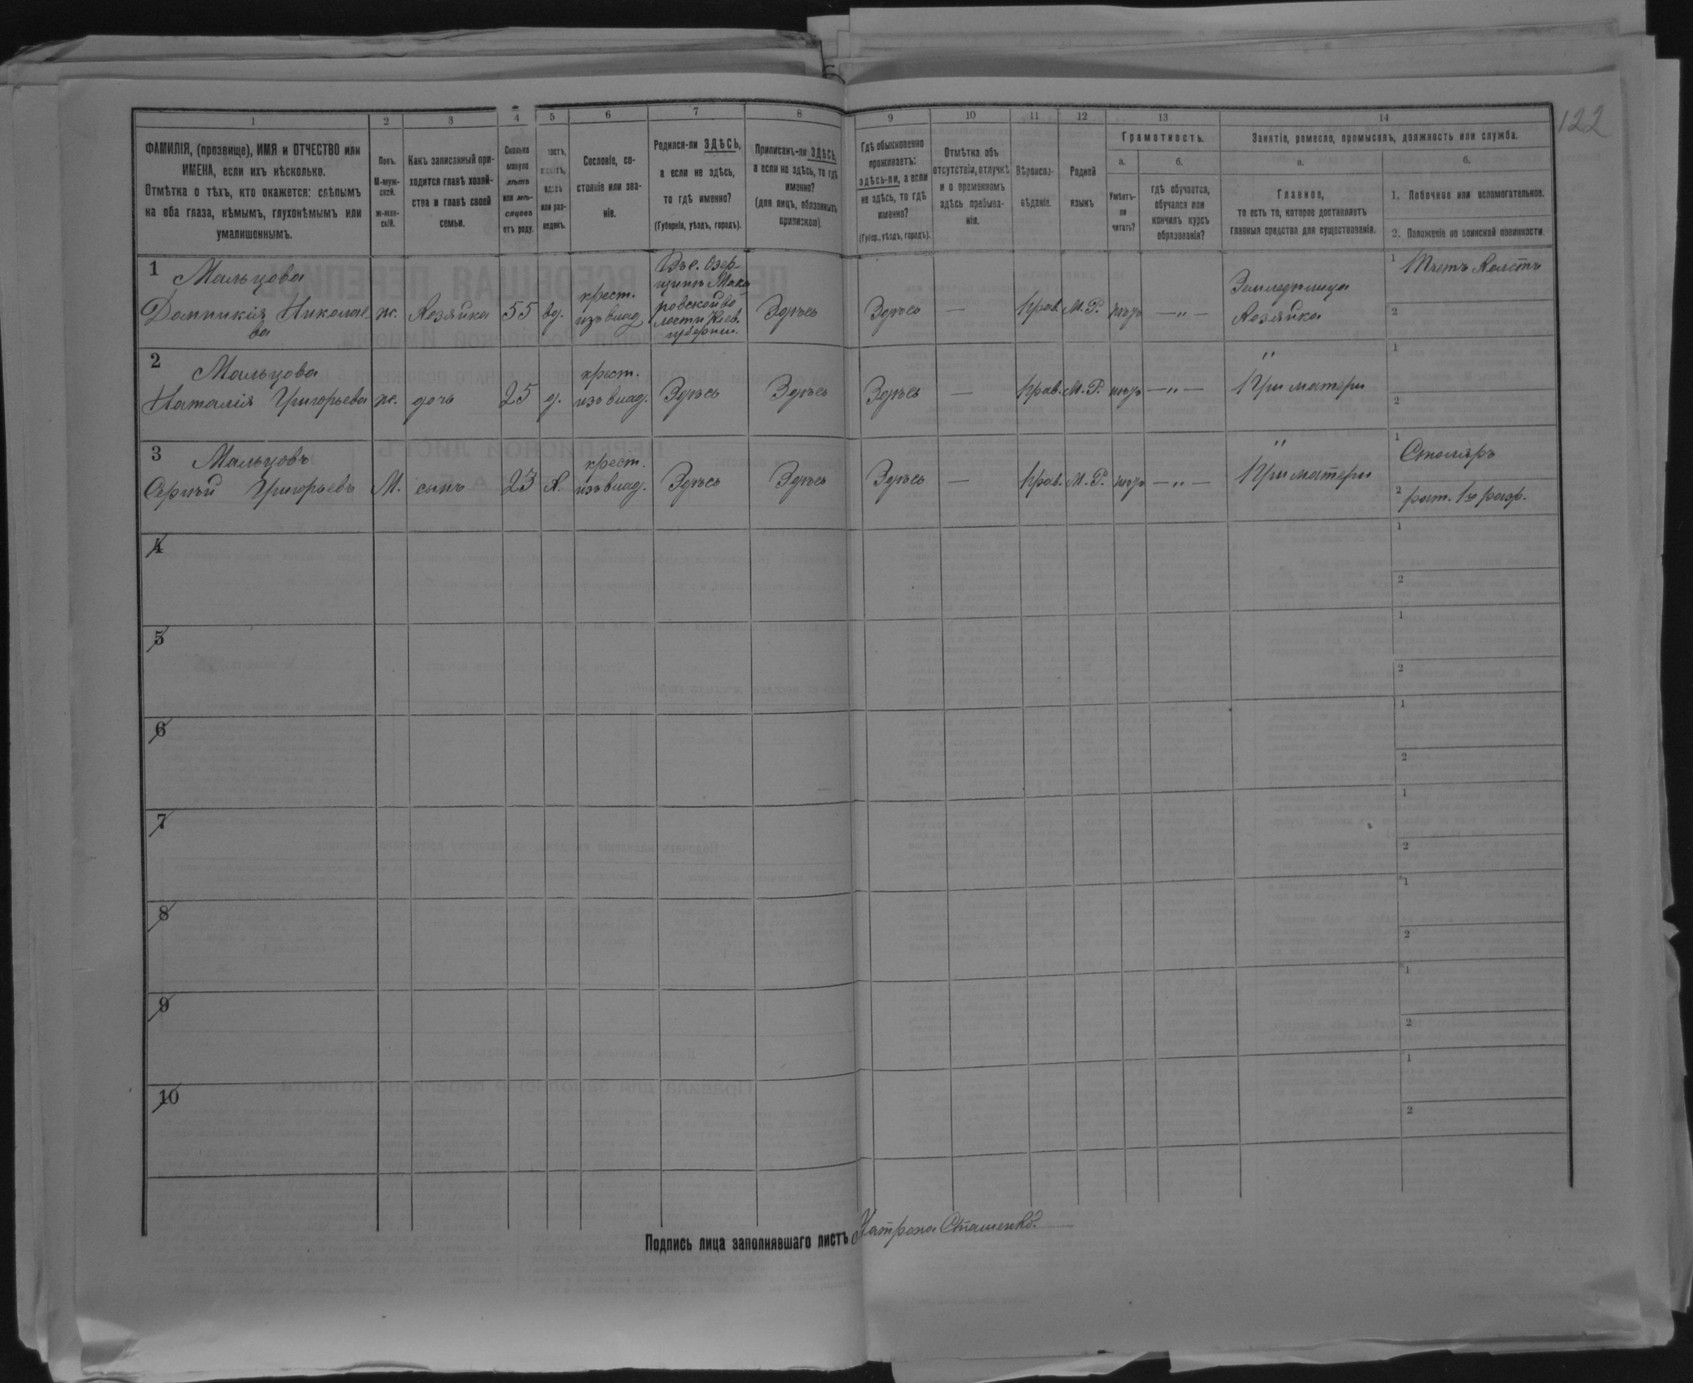 122
1 2 3 4 5 6 7 8 9 10 11 12 13 14
ФАМИЛІЯ, (прозвище), ИМЯ и ОТЧЕСТВО или
ИМЕНА, если ихъ нѣсколько.
Отмѣтка о тѣхъ, кто окажется: слѣпымъ
на оба глаза, нѣмымъ, глухонѣмымъ или
умалишеннымъ.
Полъ.
М-муж-
ской.
ж-жен-
скій.
Какъ записанный при-
ходится главѣ хозяй-
ства и главѣ своей
семьи.
Сколько
минуло
лѣтъ
или мѣ-
сяцевъ
отъ роду.
или раз-
веденъ.
Сословіе, со-
стояніе или зва-
ніе.
Родился-ли ЗДѢСЬ,
а если не здѣсь,
то гдѣ именно?
(Губернія, уѣздъ, городъ).
Приписанъ-ли ЗДѢСЬ,
а если не здѣсь, то гдѣ
именно?
(для лицъ, обязанныхъ
припиской).
Гдѣ обыкновенно
проживаетъ:
здѣсь-ли, а если
не здѣсь, то гдѣ
именно?
(Губер., уѣздъ, городъ).
Отмѣтка объ
отсутствіи, отлучкѣ
и о временномъ
здѣсь пребыва-
ніи.
Вѣроиспо-
вѣданіе.
Родной
языкъ
Грамотность.
а. б.
Умѣетъ-
ли
читать?
гдѣ обучается,
обучался или
кончилъ курсъ
образованія?
Занятіе, ремесло, промыселъ, должность или служба.
а.
Главное,
то есть то, которое доставляетъ
главныя средства для существованія.
б.
1. Побочное или вспомогательное.
2. Положеніе по воинской повинности.
1 Мальцова
Домникія Николае
ва
ж. Хозяйка 55 вд.
крест.
изъ влад.
ровской во
лости Кіев.
губерніи.
Здѣсь Здѣсь — прав. М.Р. нѣтъ — „ —
Хозяйка
1
2
2 Мальцова
Наталія Григорьева ж. дочь 25 д.
крест.
изъ влад. Здѣсь Здѣсь Здѣсь — прав. М.Р. нѣтъ — „ —
„
При матери
1
2
3 Мальцовъ
Сергѣй Григорьевъ М. сынъ 23 х.
крест.
изъ влад. Здѣсь Здѣсь Здѣсь — прав. М.Р. нѣтъ — „ —
„
При матери
1 Столяръ
2 рат. 1го разр.
4 1
2
5 1
2
6 1
2
7 1
2
8 1
2
9 1
2
10 1
2
Подпись лица заполнявшаго листъ